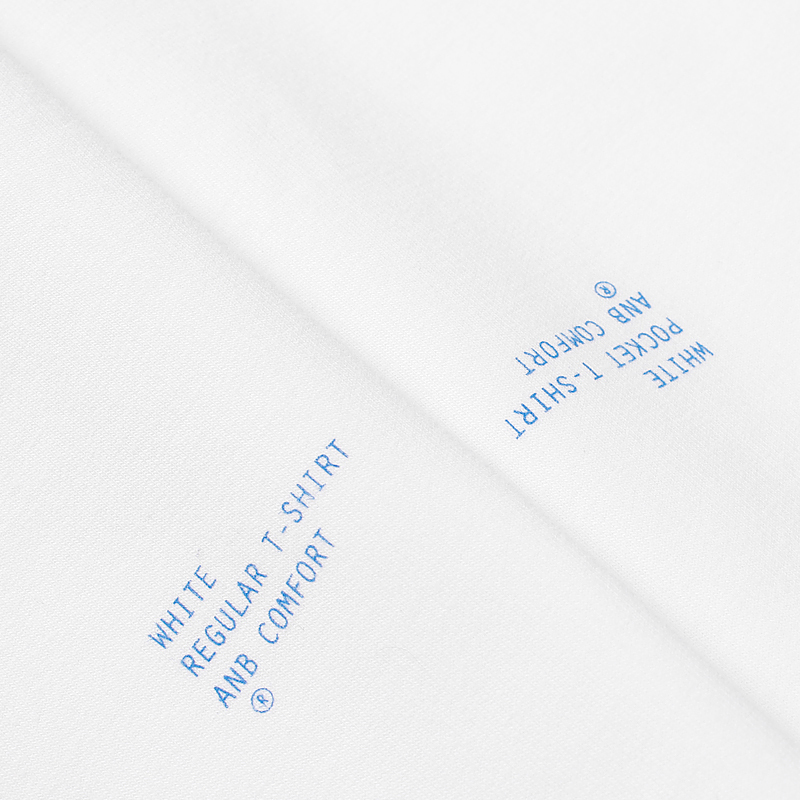 WHITE
REGULAR T-SHIRT
ANB COMFORT
®
WHITE
POCKET T-SHIRT
ANB COMFORT
®